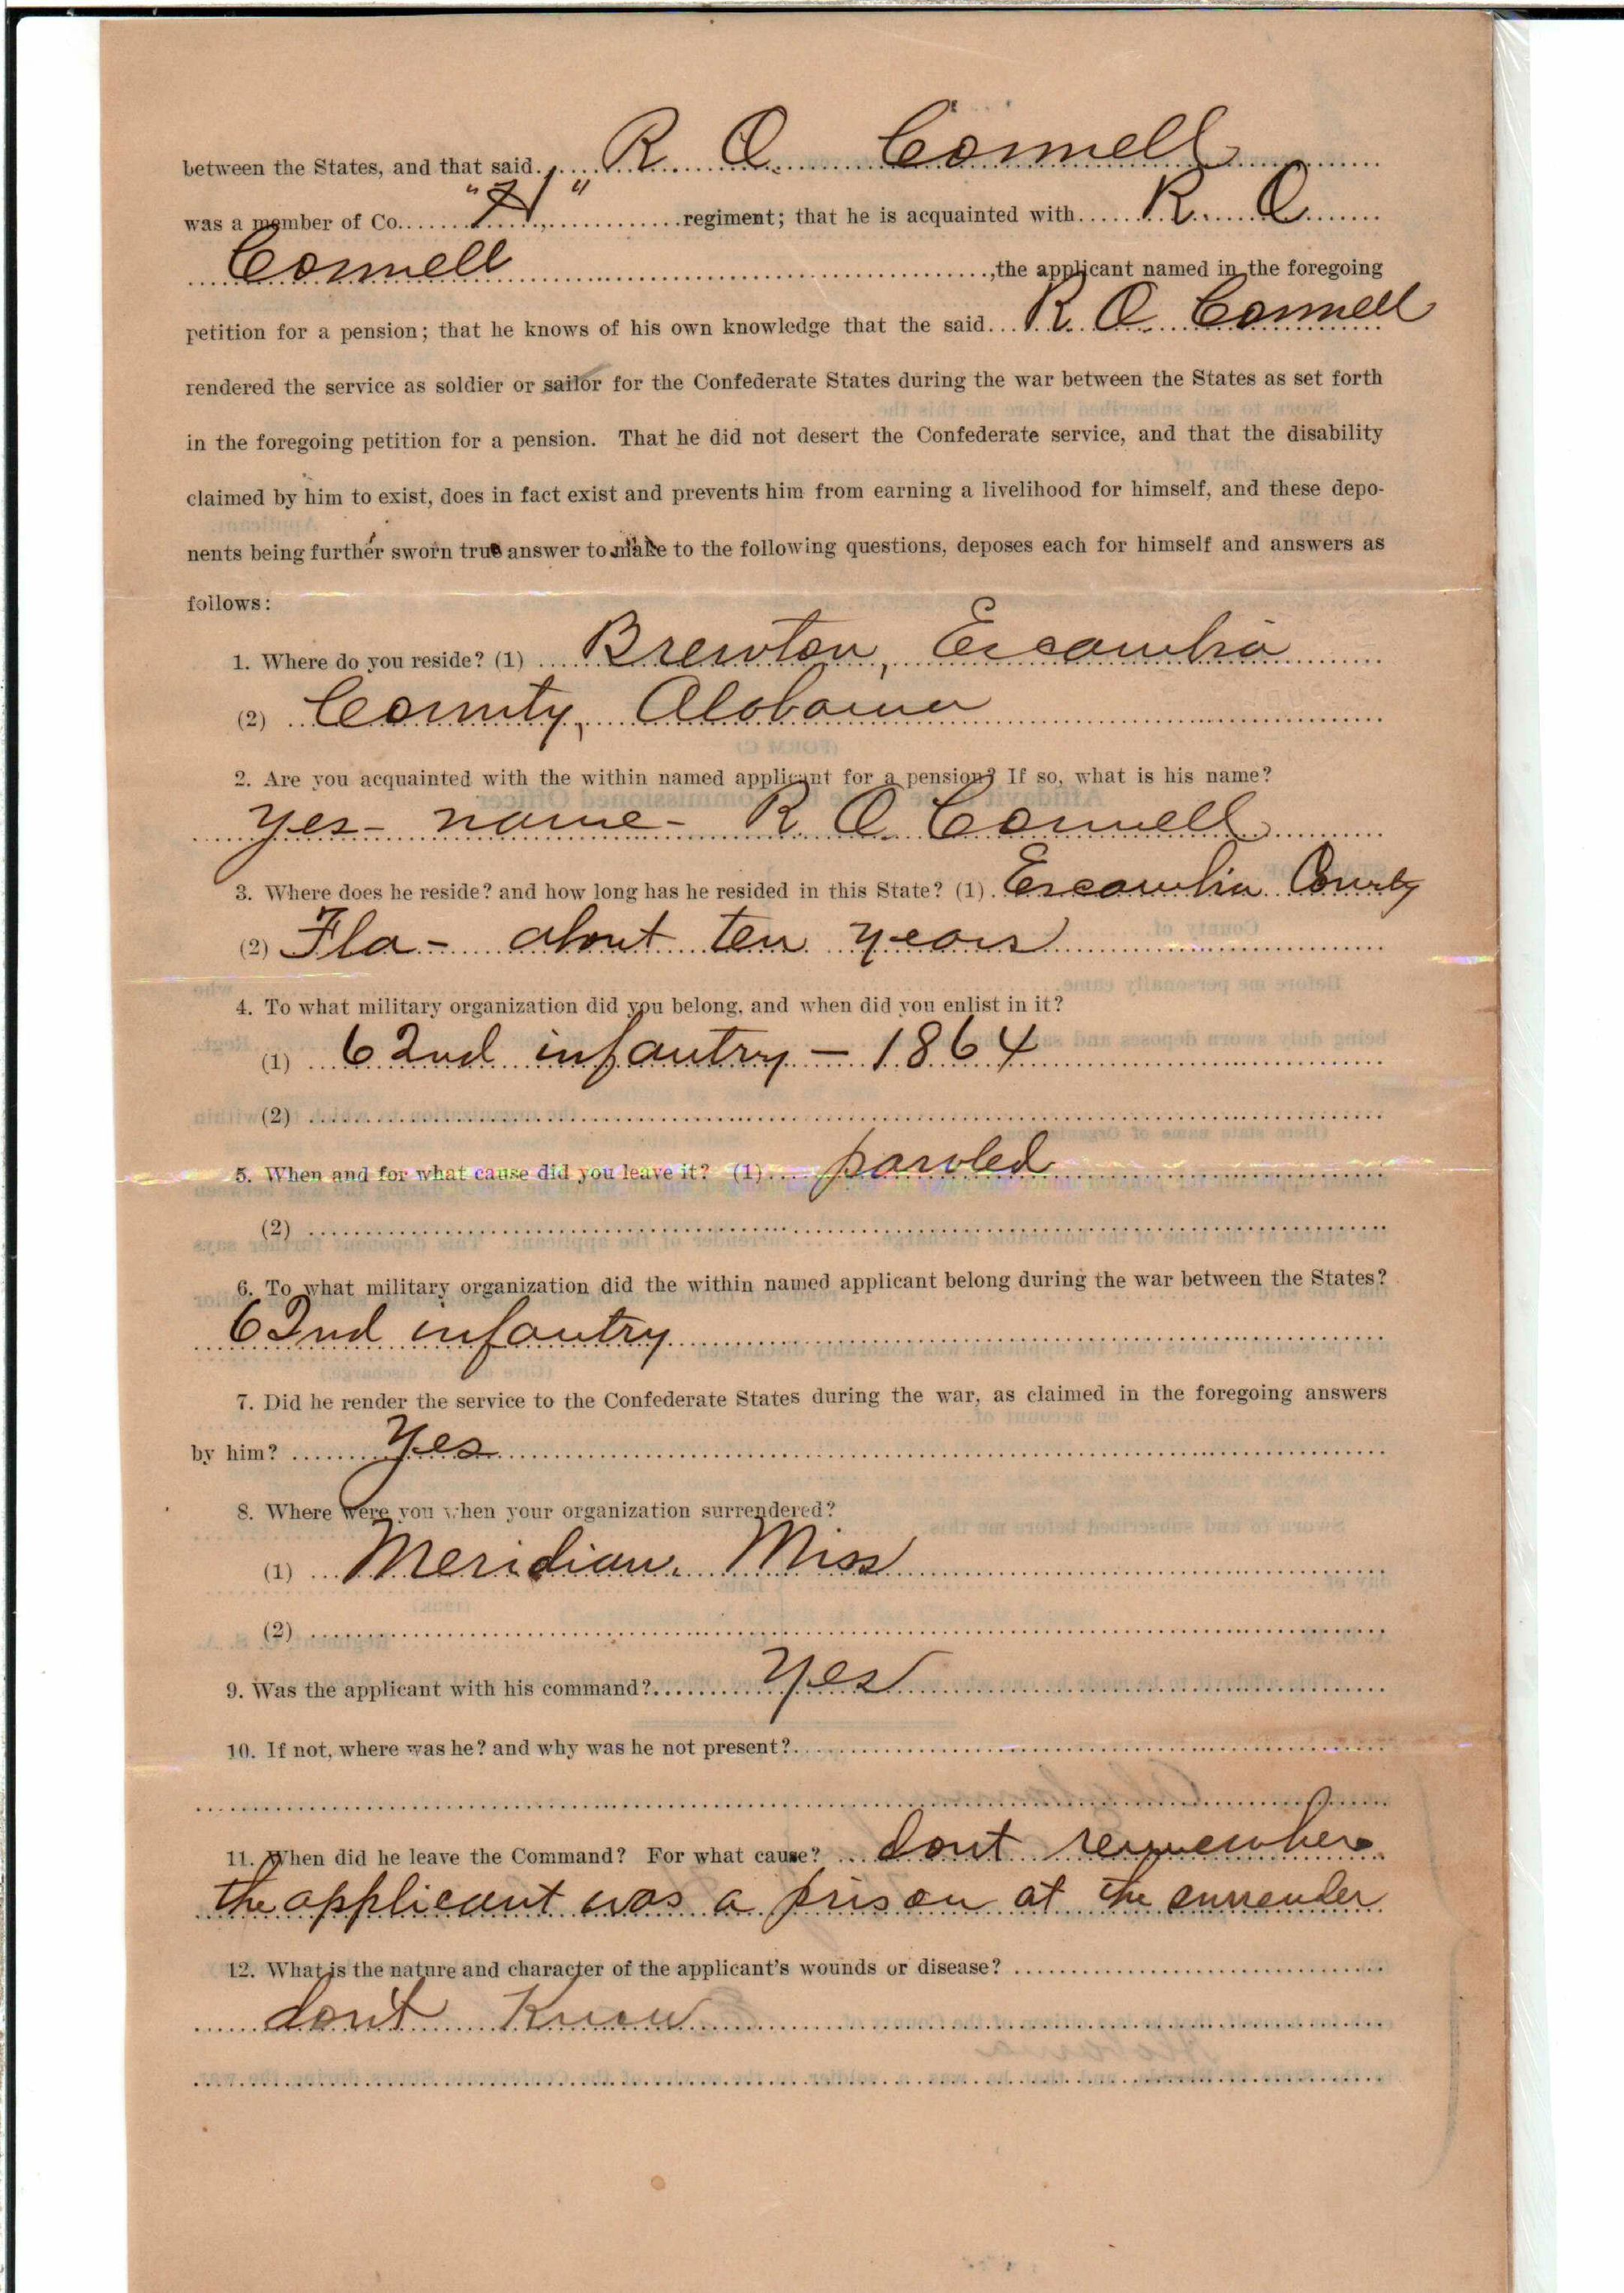 between the States, and that said R O. Connell
was a member of Co. "H" regiment; that he is acquainted with R. O
Connell, the applicant named in the foregoing
petition for a pension; that he knows of his own knowledge that the said R. O. Connell
rendered the service as soldier or sailor for the Confederate States during the war between the States as set forth
in the foregoing petition for a pension. That he did not desert the Confederate service, and that the disability
claimed by him to exist, does in fact exist and prevents him from earning a livelihood for himself, and these depo-
nents being further sworn true answer to make to the following questions, deposes each for himself and answers as
follows:
1. Where do you reside? (1) Brewton, Escambia
(2) County, Alabama
2. Are you acquainted with the within named applicant for a pension? If so, what is his name?
Yes- name- R O. Connell
3. Where does he reside? and how long has he resided in this State? (1) Escambia County
(2) Fla- about ten years
4. To what military organization did you belong, and when did you enlist in it?
(1) 62nd infantry - 1864
(2)
5. When and for what cause did you leave it? (1) paroled
(2)
6. To what military organization did the within named applicant belong during the war between the States?
62nd infantry
7. Did he render the service to the Confederate States during the war, as claimed in the foregoing answers
by him? Yes
8. Where were you when your organization surrendered?
(1) Meridian. Miss
(2)
9. Was the applicant with his command? Yes
10. If not, where was he? and why was he not present?
11. When did he leave the Command? For what cause? dont remember
the applicant was a prison at the surrender
12. What is the nature and character of the applicant's wounds or disease?
don't Know